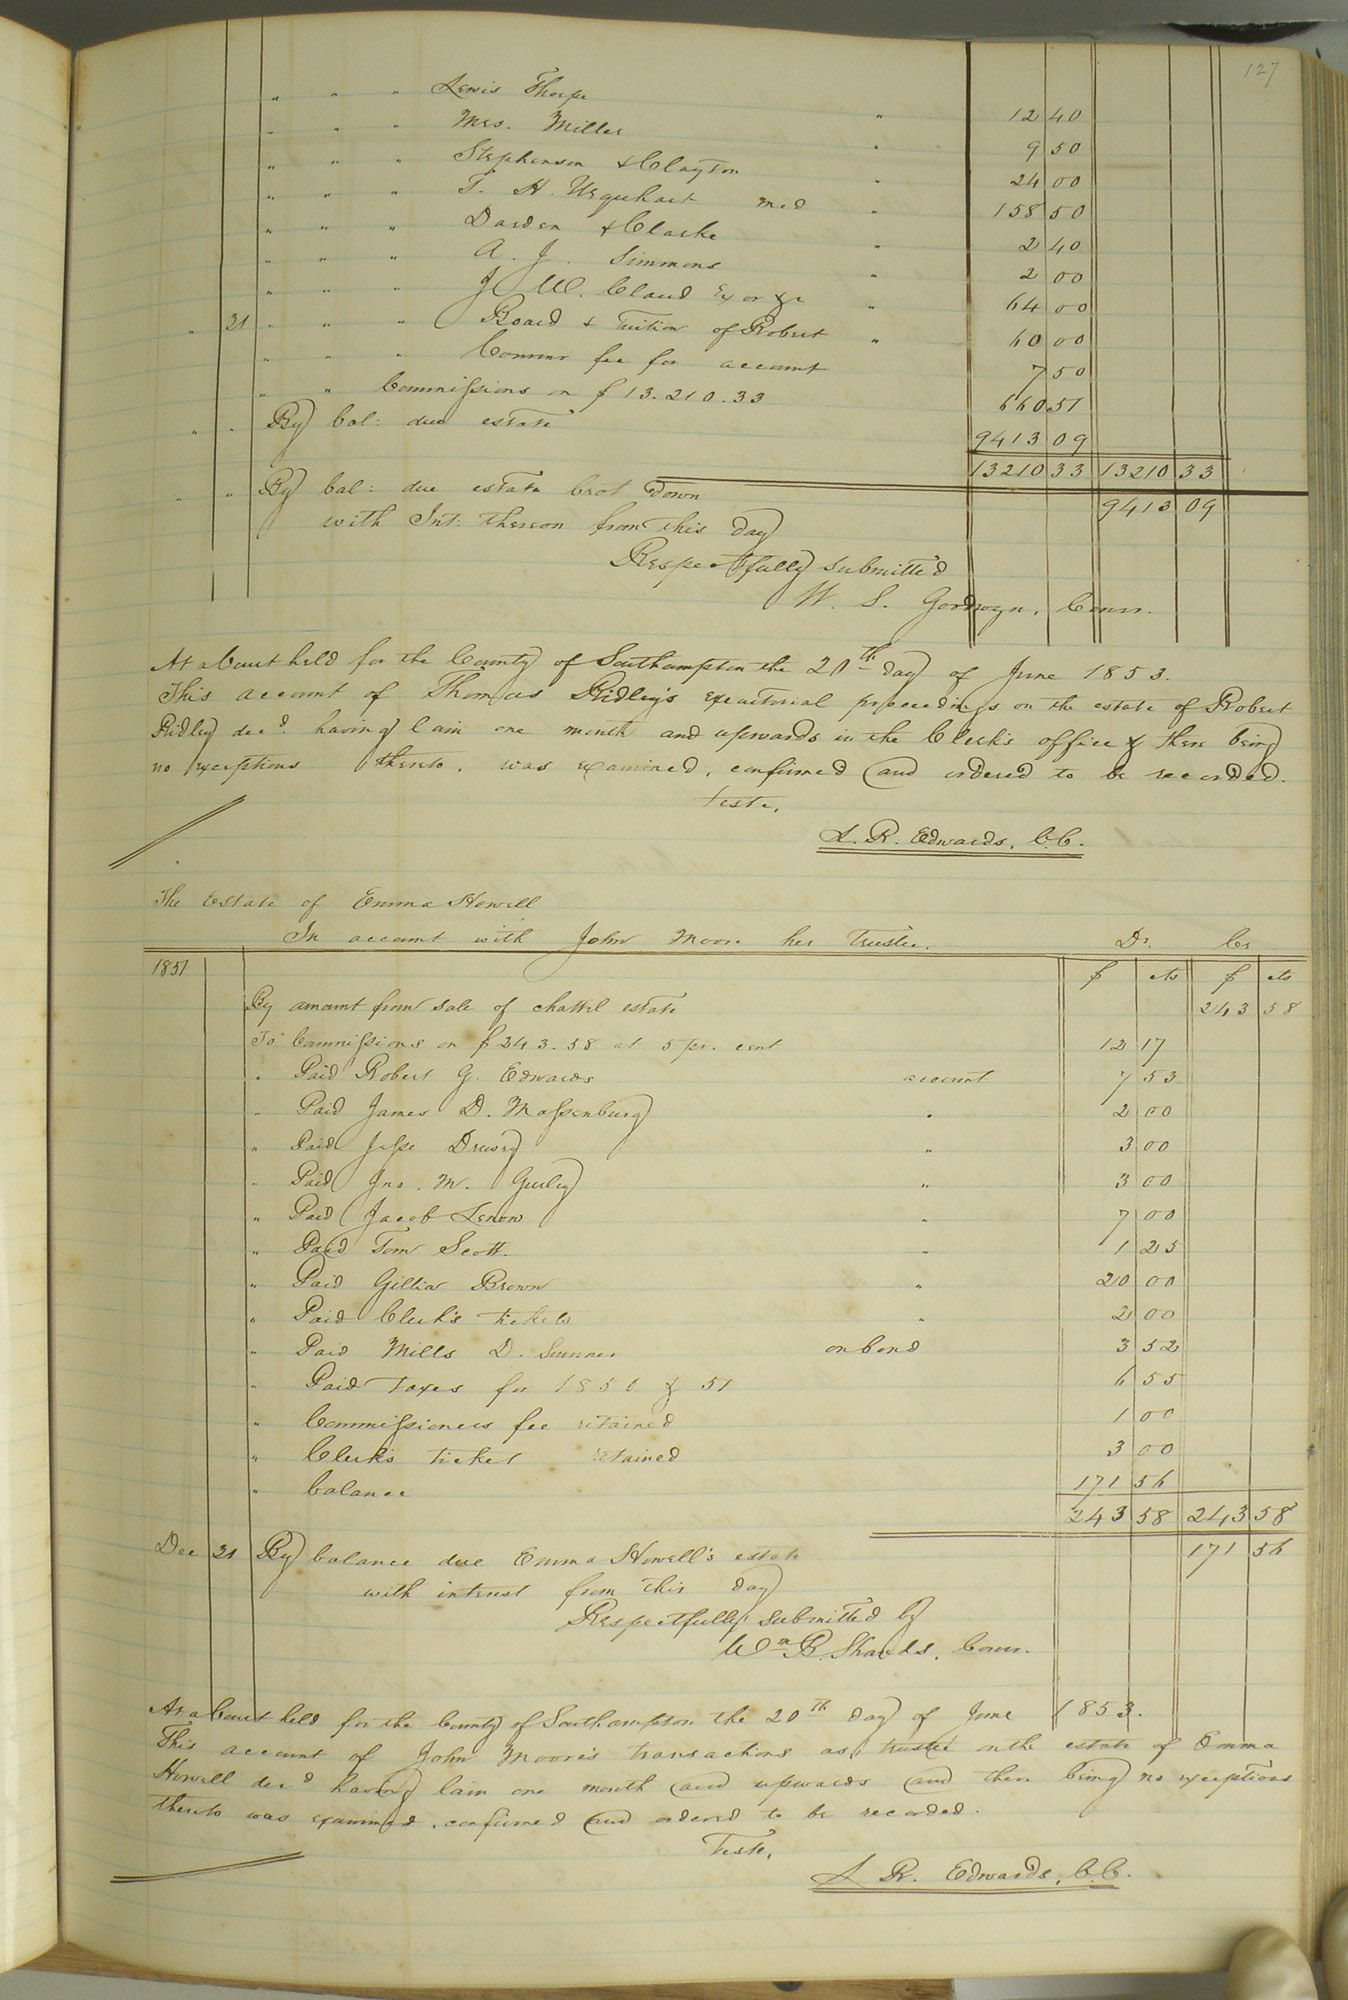 127
" " " Lewis Thorpe " 12 40
" " " Mrs. Miller " 9 50
" " " Stephenson & Clayton " 24 00
" " " T. H. Urquhart med " 158 50
" " " Darden & Clarke " 2 40
" " " A. J. Simmons " 2 00
" " " J W. Claud Exor &c " 64 00
" 31 " " " Board & Tuition of Robert " 60 00
" " " Commr fee for account 7 50
" " Commissions on $13.210.33 660 51
" " By bal: due estate 9413 09
13210 33 13210 33
" " By bal: due estate brot down 9413 09
with Int: thereon from this day
Respectfully submitted
W. S. Goodwyn, Comr.
At a Court held for the County of Southampton the 20th day of June 1853.
This account of Thomas Ridley's executorial proceedings on the estate of Robert
Ridley decd. having lain one month and upwards in the Clerk's office & there being
no exceptions thereto, was examined, confirmed and ordered to be recorded.
Teste,
L. R. Edwards, C.C.
The Estate of Emma Howell
In account with John Moore her Trustee. Dr. Cr
1851 $ cts $ cts
By amount from sale of chattel estate 243 58
To Commissions on $243.58 at 5 pr. cent 12 17
" Paid Robert G. Edwards account 7 53
" Paid James D. Massenburg " 2 00
" Paid Jesse Drewry " 3 00
" Paid Jno. M. Gurley " 3 00
" Paid Jacob Lenow " 7 00
" Paid Tom Scott. " 1 25
" Paid Gillia Brown " 20 00
" Paid Clerk's tickets " 2 00
" Paid Mills D. Sumner on bond 3 52
" Paid Taxes for 1850 & 51 6 55
" Commissioners fee retained 1 00
" Clerk's ticket retained 3 00
" balance 171 56
243 58 243 58
Dec 31 By balance due Emma Howell's estate 171 56
with interest from this day
Respectfully submitted by
Wm B. Shands, Comr.
At a Court held for the County of Southampton the 20th day of June 1853.
This account of John Moore's transactions as trustee on the estate of Emma
Howell decd having lain one month and upwards and there being no exceptions
thereto was examined, confirmed and ordered to be recorded.
Teste,
L R. Edwards, C.C.